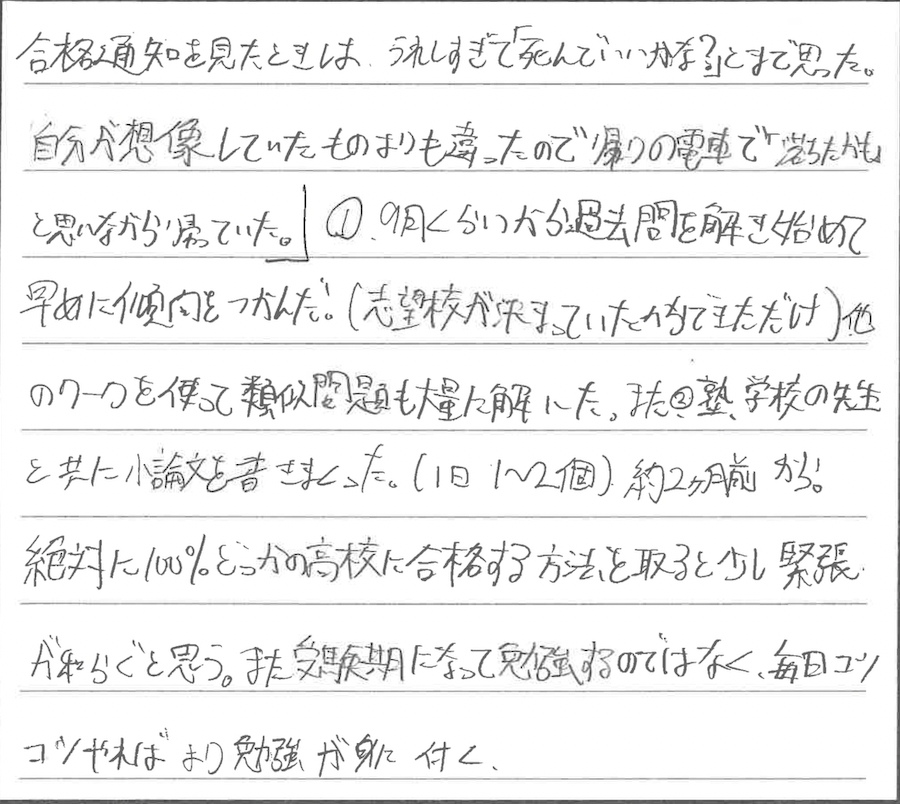 合格通知を見たときは、うれしすぎて「死んでいいかな?」とまで思った。
自分が想像していたものよりも違ったので帰りの電車で「落ちたかも」
と思いながら帰っていた。」①、9月くらいから過去問を解き始めて
早めに傾向をつかんだ。(志望校が決まっていたからできただけ)他
のワークを使って類似問題も大量に解いた。また②塾、学校の先生
と共に小論文を書きまくった。(1日1~2個)約2ヶ月前から。
絶対に100%どっかの高校に合格する方法を取ると少し緊張
が和らぐと思う。また受験期になって勉強するのではなく、毎日コツ
コツやればより勉強が身に付く、